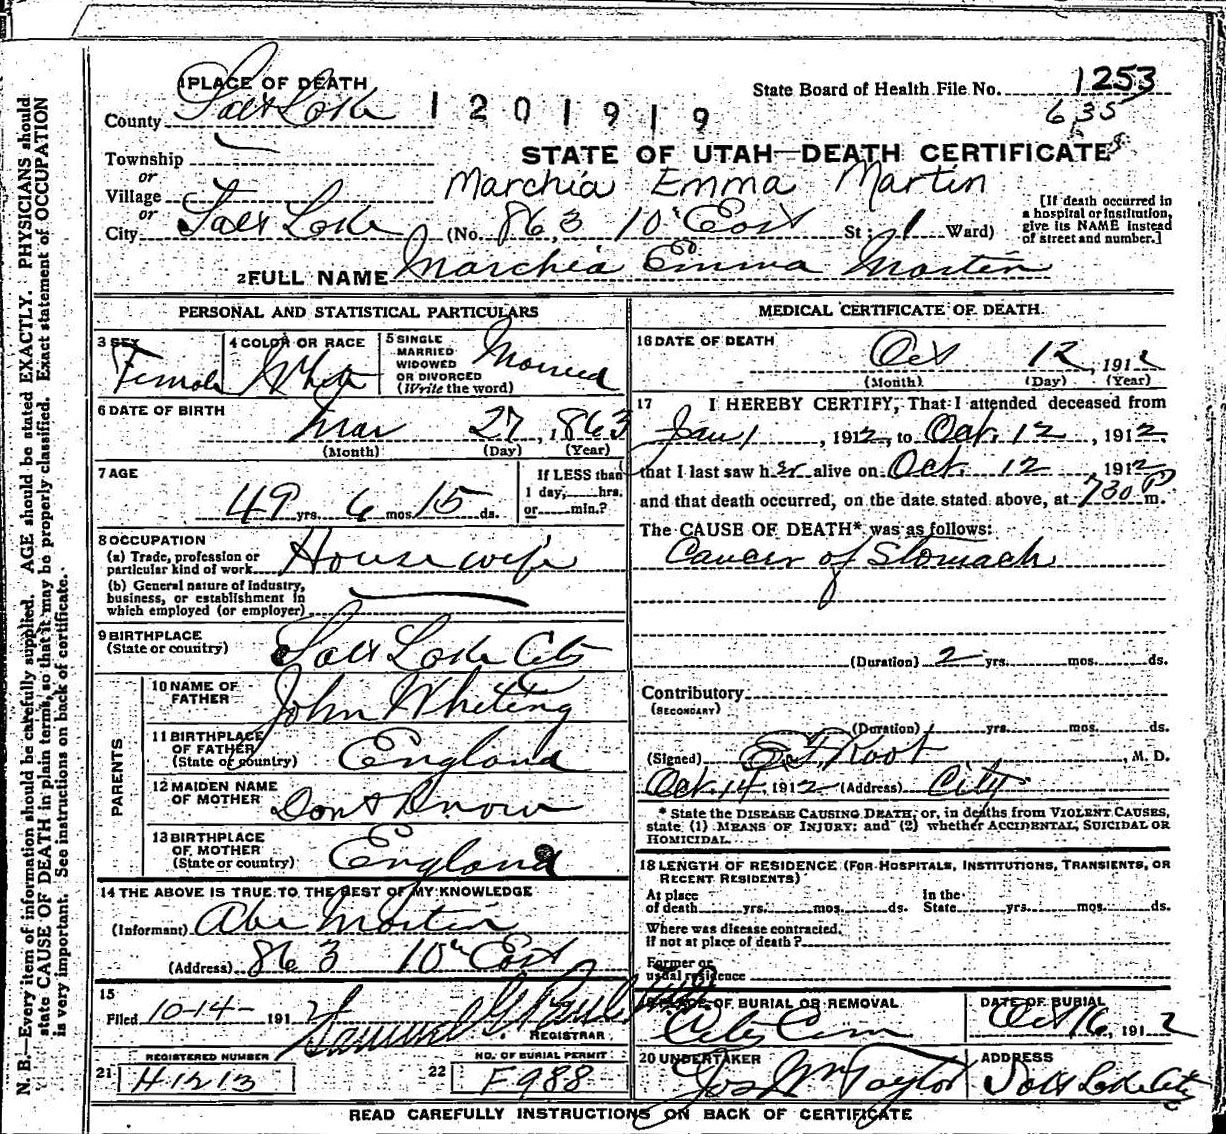 1 PLACE OF DEATH
County Salt Lake
1201919
State Board of Health File No. 1253
635
Township
or
Village
or
City Salt Lake
STATE OF UTAH—DEATH CERTIFICATE
Marchia Emma Martin
(No. 863 10" East St; 1 Ward)
[If death occurred in
a hospital or institution,
give its NAME instead
of street and number.]
2 FULL NAME Marchia Emma Martin
PERSONAL AND STATISTICAL PARTICULARS
3 SEX
Female
4 COLOR OR RACE
White
5 SINGLE
MARRIED
WIDOWED
OR DIVORCED
(Write the word)
Married
6 DATE OF BIRTH
Mar 27, 1863
(Month) (Day) (Year)
7 AGE
49 yrs. 6 mos. 15 ds.
If LESS than
1 day, hrs.
or min.?
8 OCCUPATION
(a) Trade, profession or
particular kind of work Housewife
(b) General nature of industry,
business, or establishment in
which employed (or employer)
9 BIRTHPLACE
(State or country) Salt Lake City
PARENTS
10 NAME OF
FATHER John Whiting
11 BIRTHPLACE
OF FATHER
(State or country) England
12 MAIDEN NAME
OF MOTHER Dont Know
13 BIRTHPLACE
OF MOTHER
(State or country) England
14 THE ABOVE IS TRUE TO THE BEST OF MY KNOWLEDGE
(Informant) Abe Martin
(Address) 863 10" East
15
Filed 10-14- 1912 Samuel G.
REGISTRAR
REGISTERED NUMBER
21 H1213
NO. OF BURIAL PERMIT
22 F988
MEDICAL CERTIFICATE OF DEATH
16 DATE OF DEATH
Oct 12, 1912
(Month) (Day) (Year)
17 I HEREBY CERTIFY, That I attended deceased from
Jan 1, 1912, to Oct. 12, 1912,
that I last saw her alive on Oct. 12, 1912,
and that death occurred, on the date stated above, at 730 P m.
The CAUSE OF DEATH* was as follows:
Cancer of Stomach
(Duration) 2 yrs. mos. ds.
Contributory
(SECONDARY)
(Duration) yrs. mos. ds.
(Signed) Root, M. D.
Oct. 14, 1912 (Address) City
* State the DISEASE CAUSING DEATH, or, in deaths from VIOLENT CAUSES,
state (1) MEANS OF INJURY; and (2) whether ACCIDENTAL, SUICIDAL OR
HOMICIDAL.
18 LENGTH OF RESIDENCE (FOR HOSPITALS, INSTITUTIONS, TRANSIENTS, OR
RECENT RESIDENTS)
At place
of death yrs. mos. ds.
In the
State yrs. mos. ds.
Where was disease contracted,
if not at place of death?
Former or
usual residence
19 PLACE OF BURIAL OR REMOVAL
City Cem
DATE OF BURIAL
Oct 16, 1912
20 UNDERTAKER
Jos Wm Taylor
ADDRESS
Salt Lake City
READ CAREFULLY INSTRUCTIONS ON BACK OF CERTIFICATE
N. B.—Every item of information should be carefully supplied. AGE should be stated EXACTLY. PHYSICIANS should
state CAUSE OF DEATH in plain terms, so that it may be properly classified. Exact statement of OCCUPATION
is very important. See instructions on back of certificate.